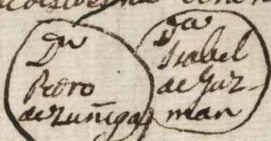 Dn
Pedro
de Zuñiga
Da
Isabel
de Guz-
man